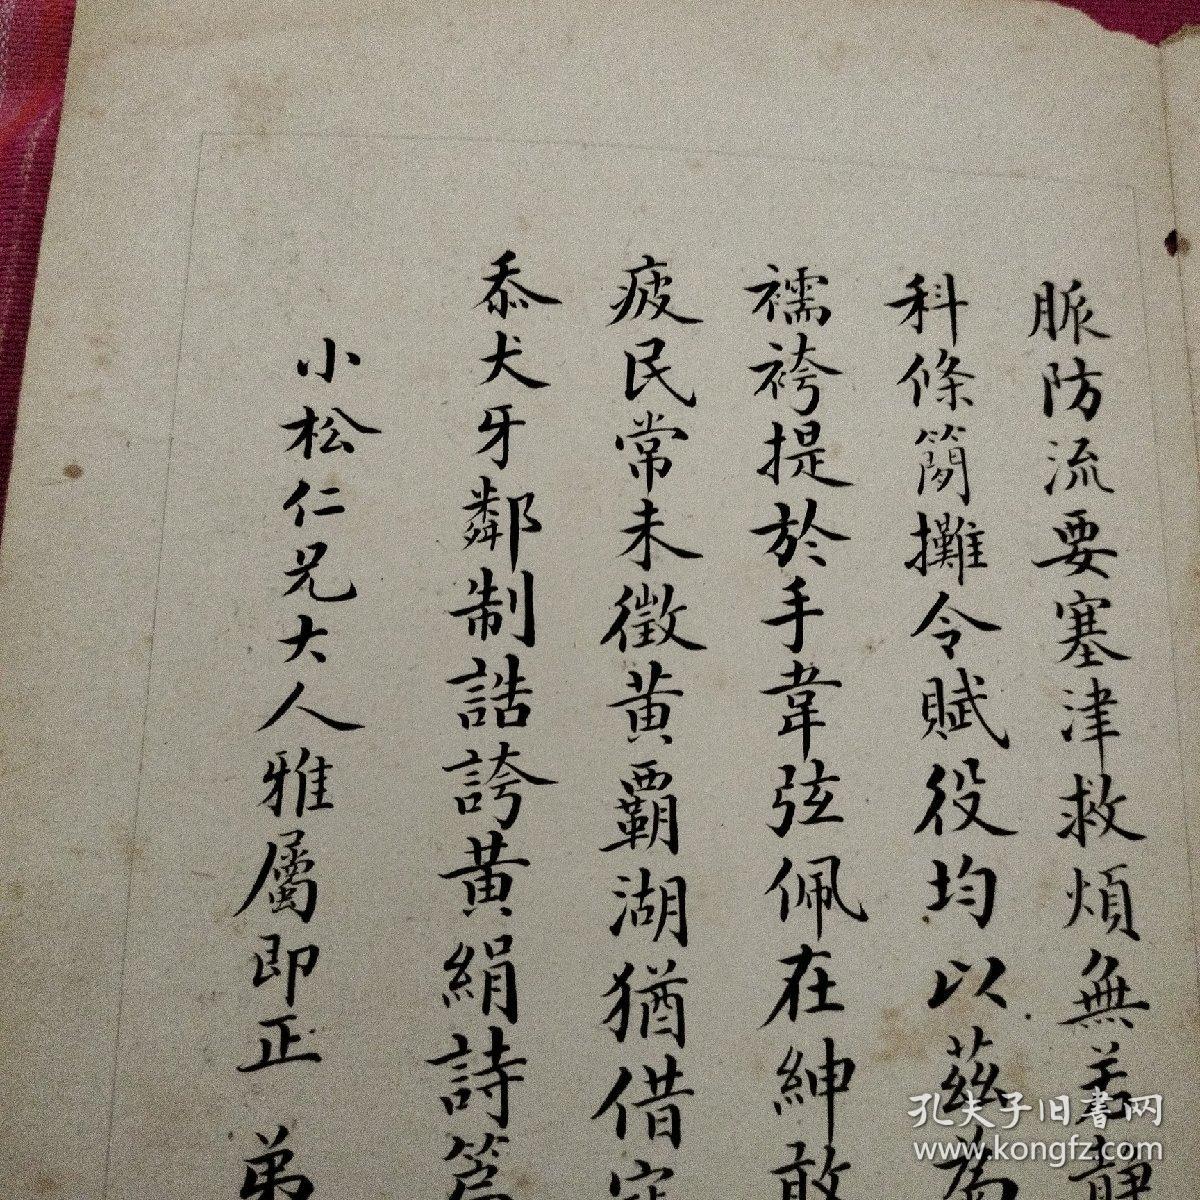 脈防流要塞津救煩無若靜
科條簡攤令賦役均以茲為
襦袴提於手韋弦佩在紳敢
疲民常未徵黃霸湖猶借寇
忝犬牙鄰制誥誇黃絹詩篇
小松仁兄大人雅屬即正 弟
孔夫子旧書网
www.kongfz.com